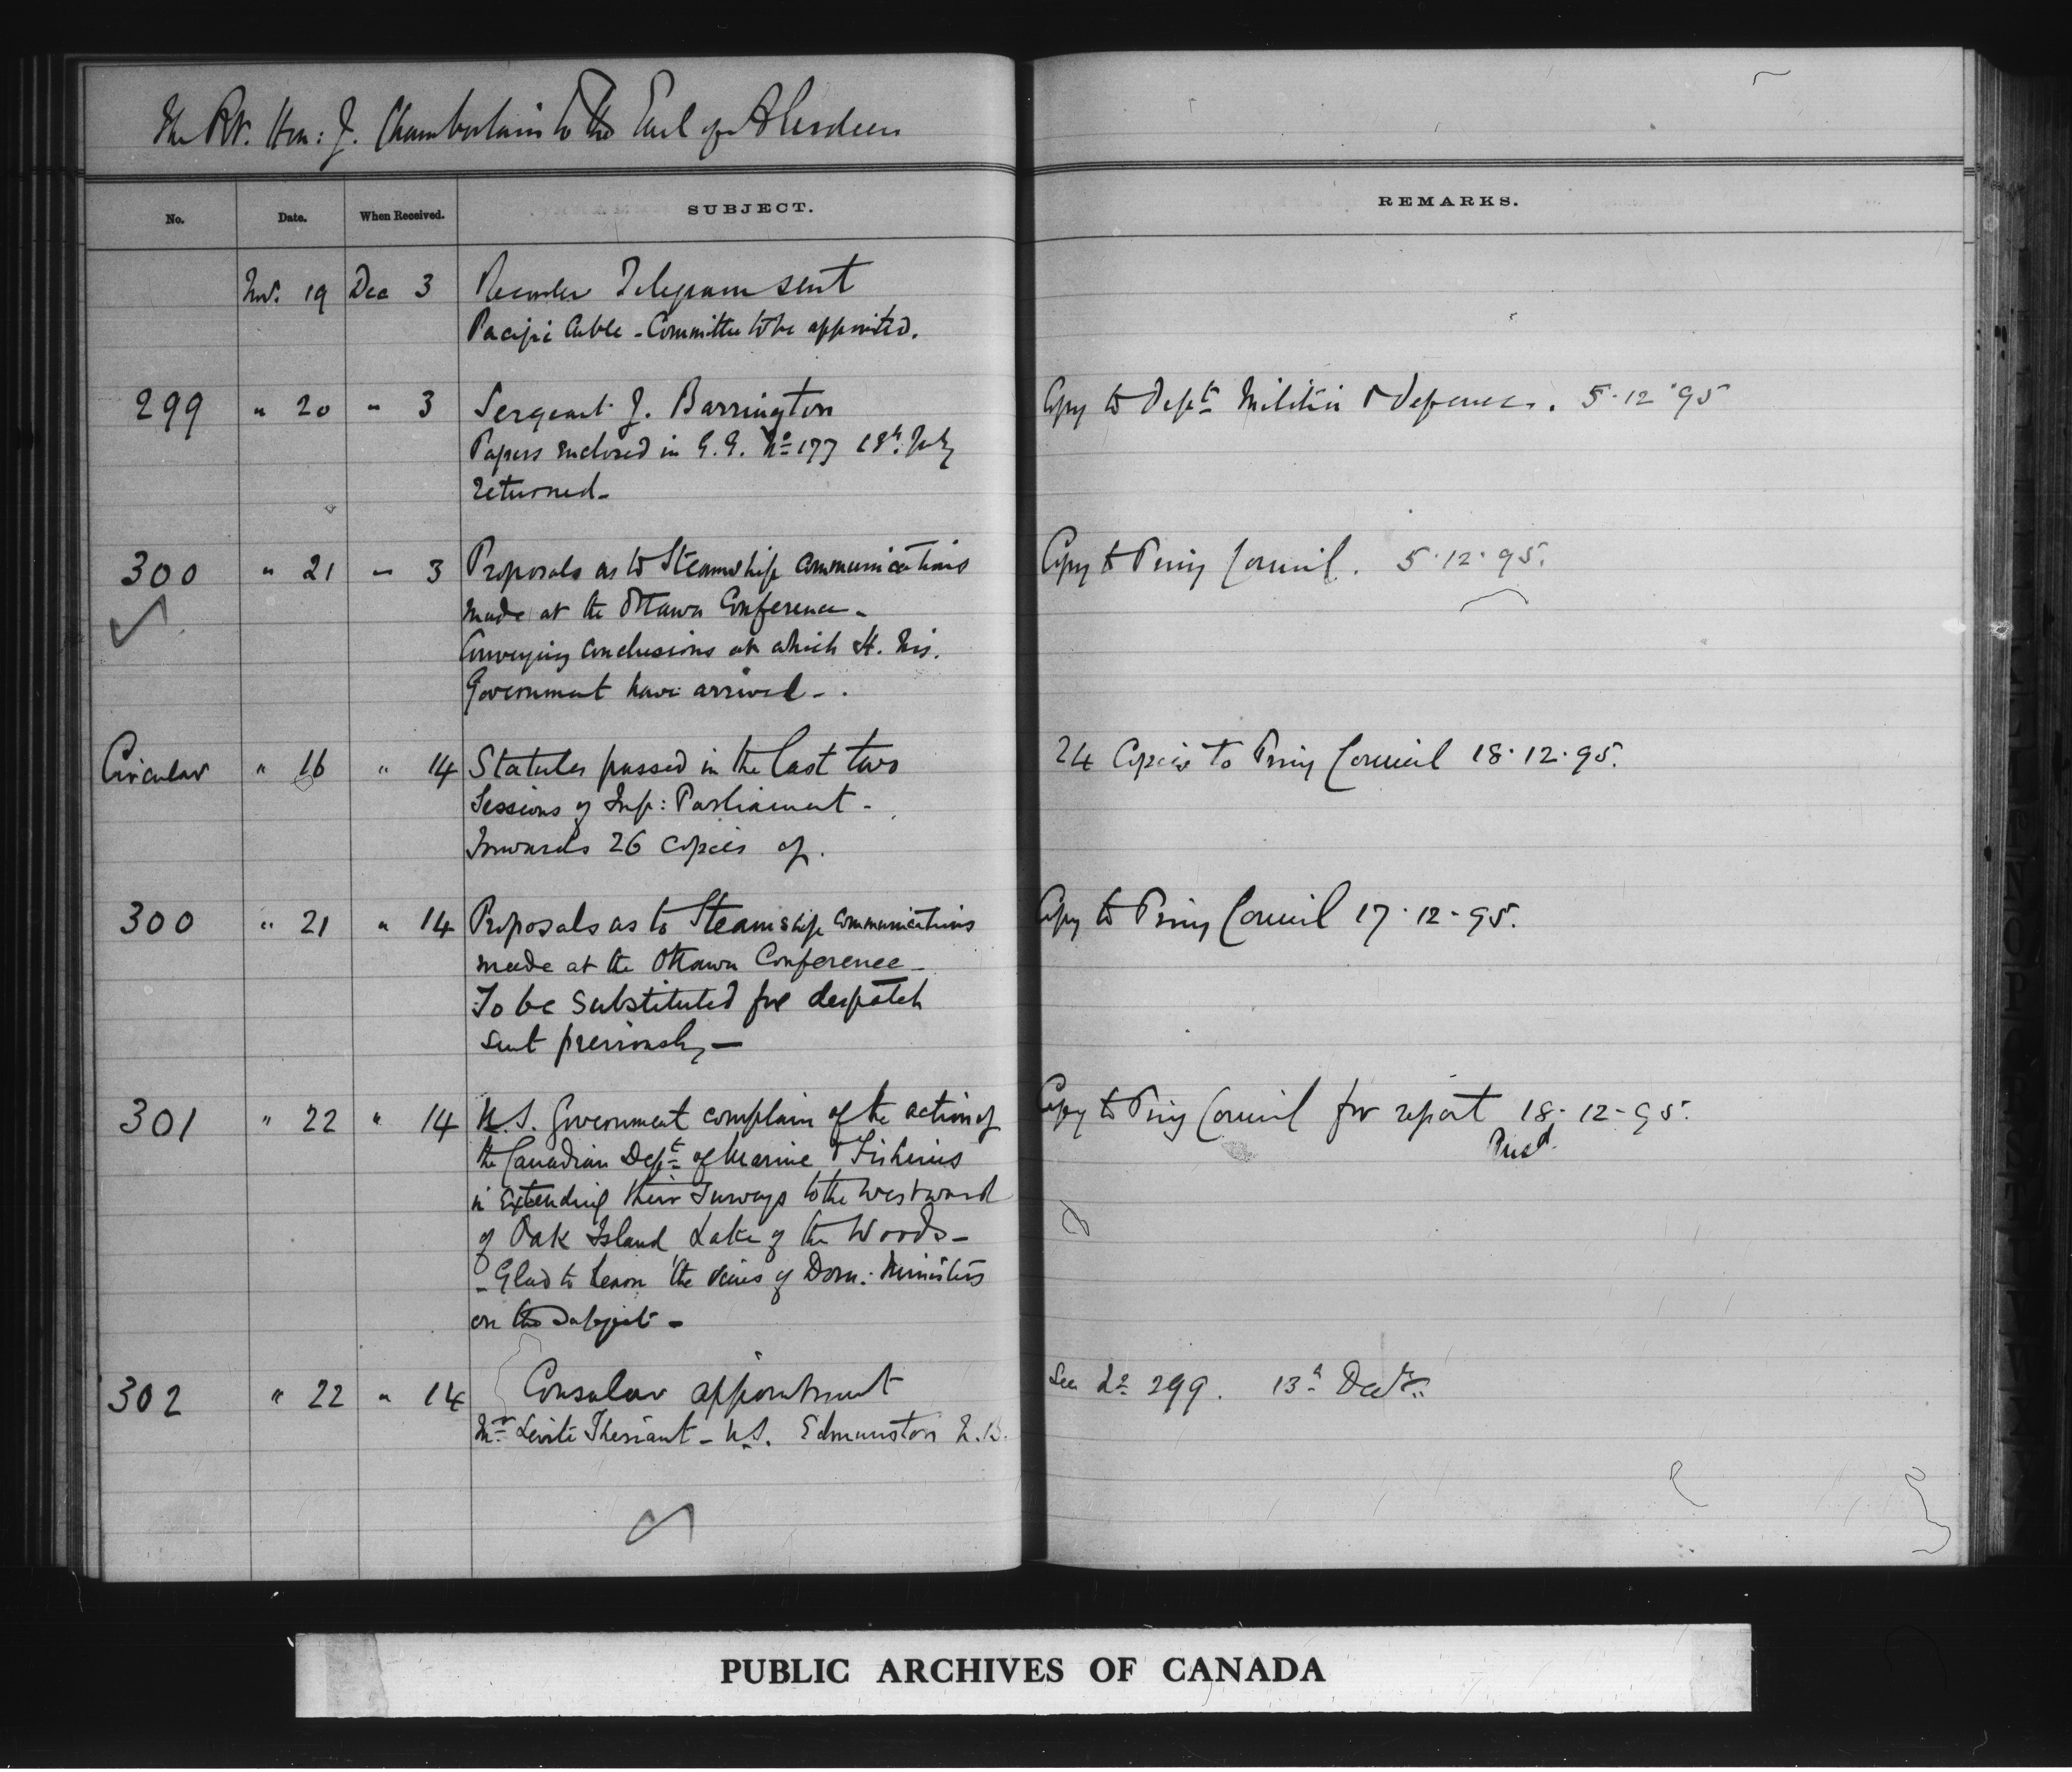 The Rt. Hon: J. Chamberlain to the Earl of Aberdeen
No. Date. When Received. SUBJECT. REMARKS.
Nov. 19 Dec 3 Recorder Telegram sent
Pacific Cable - Committee to be appointed.
299 " 20 " 3 Sergeant J. Barrington Copy to Dept Militia & Defence. 5.12.95
Papers enclosed in G.G. No 177 18th July
returned -
300 " 21 " 3 Proposals as to Steamship Communications Copy to Privy Council. 5.12.95.
made at the Ottawa Conference -
Conveying conclusions at which H. Mjs.
Government have arrived -
Circular " 16 " 14 Statutes passed in the last two 24 Copies to Privy Council 18.12.95.
Sessions of Imp: Parliament -
Forwards 26 copies of.
300 " 21 " 14 Proposals as to Steamship Communications Copy to Privy Council 17.12.95.
made at the Ottawa Conference -
To be substituted for despatch
sent previously -
301 " 22 " 14 U.S. Government complain of the action of Copy to Privy Council for report 18.12.95.
the Canadian Dept of Marine & Fisheries
in extending their Surveys to the westward
of Oak Island Lake of the Woods -
- Glad to learn the views of Dom: Ministers
on the subject -
302 " 22 " 14 Consular appointment See 299. 13th Decr.
Mr Levite Theriault - U.S. Edmunston N.B.
PUBLIC ARCHIVES OF CANADA